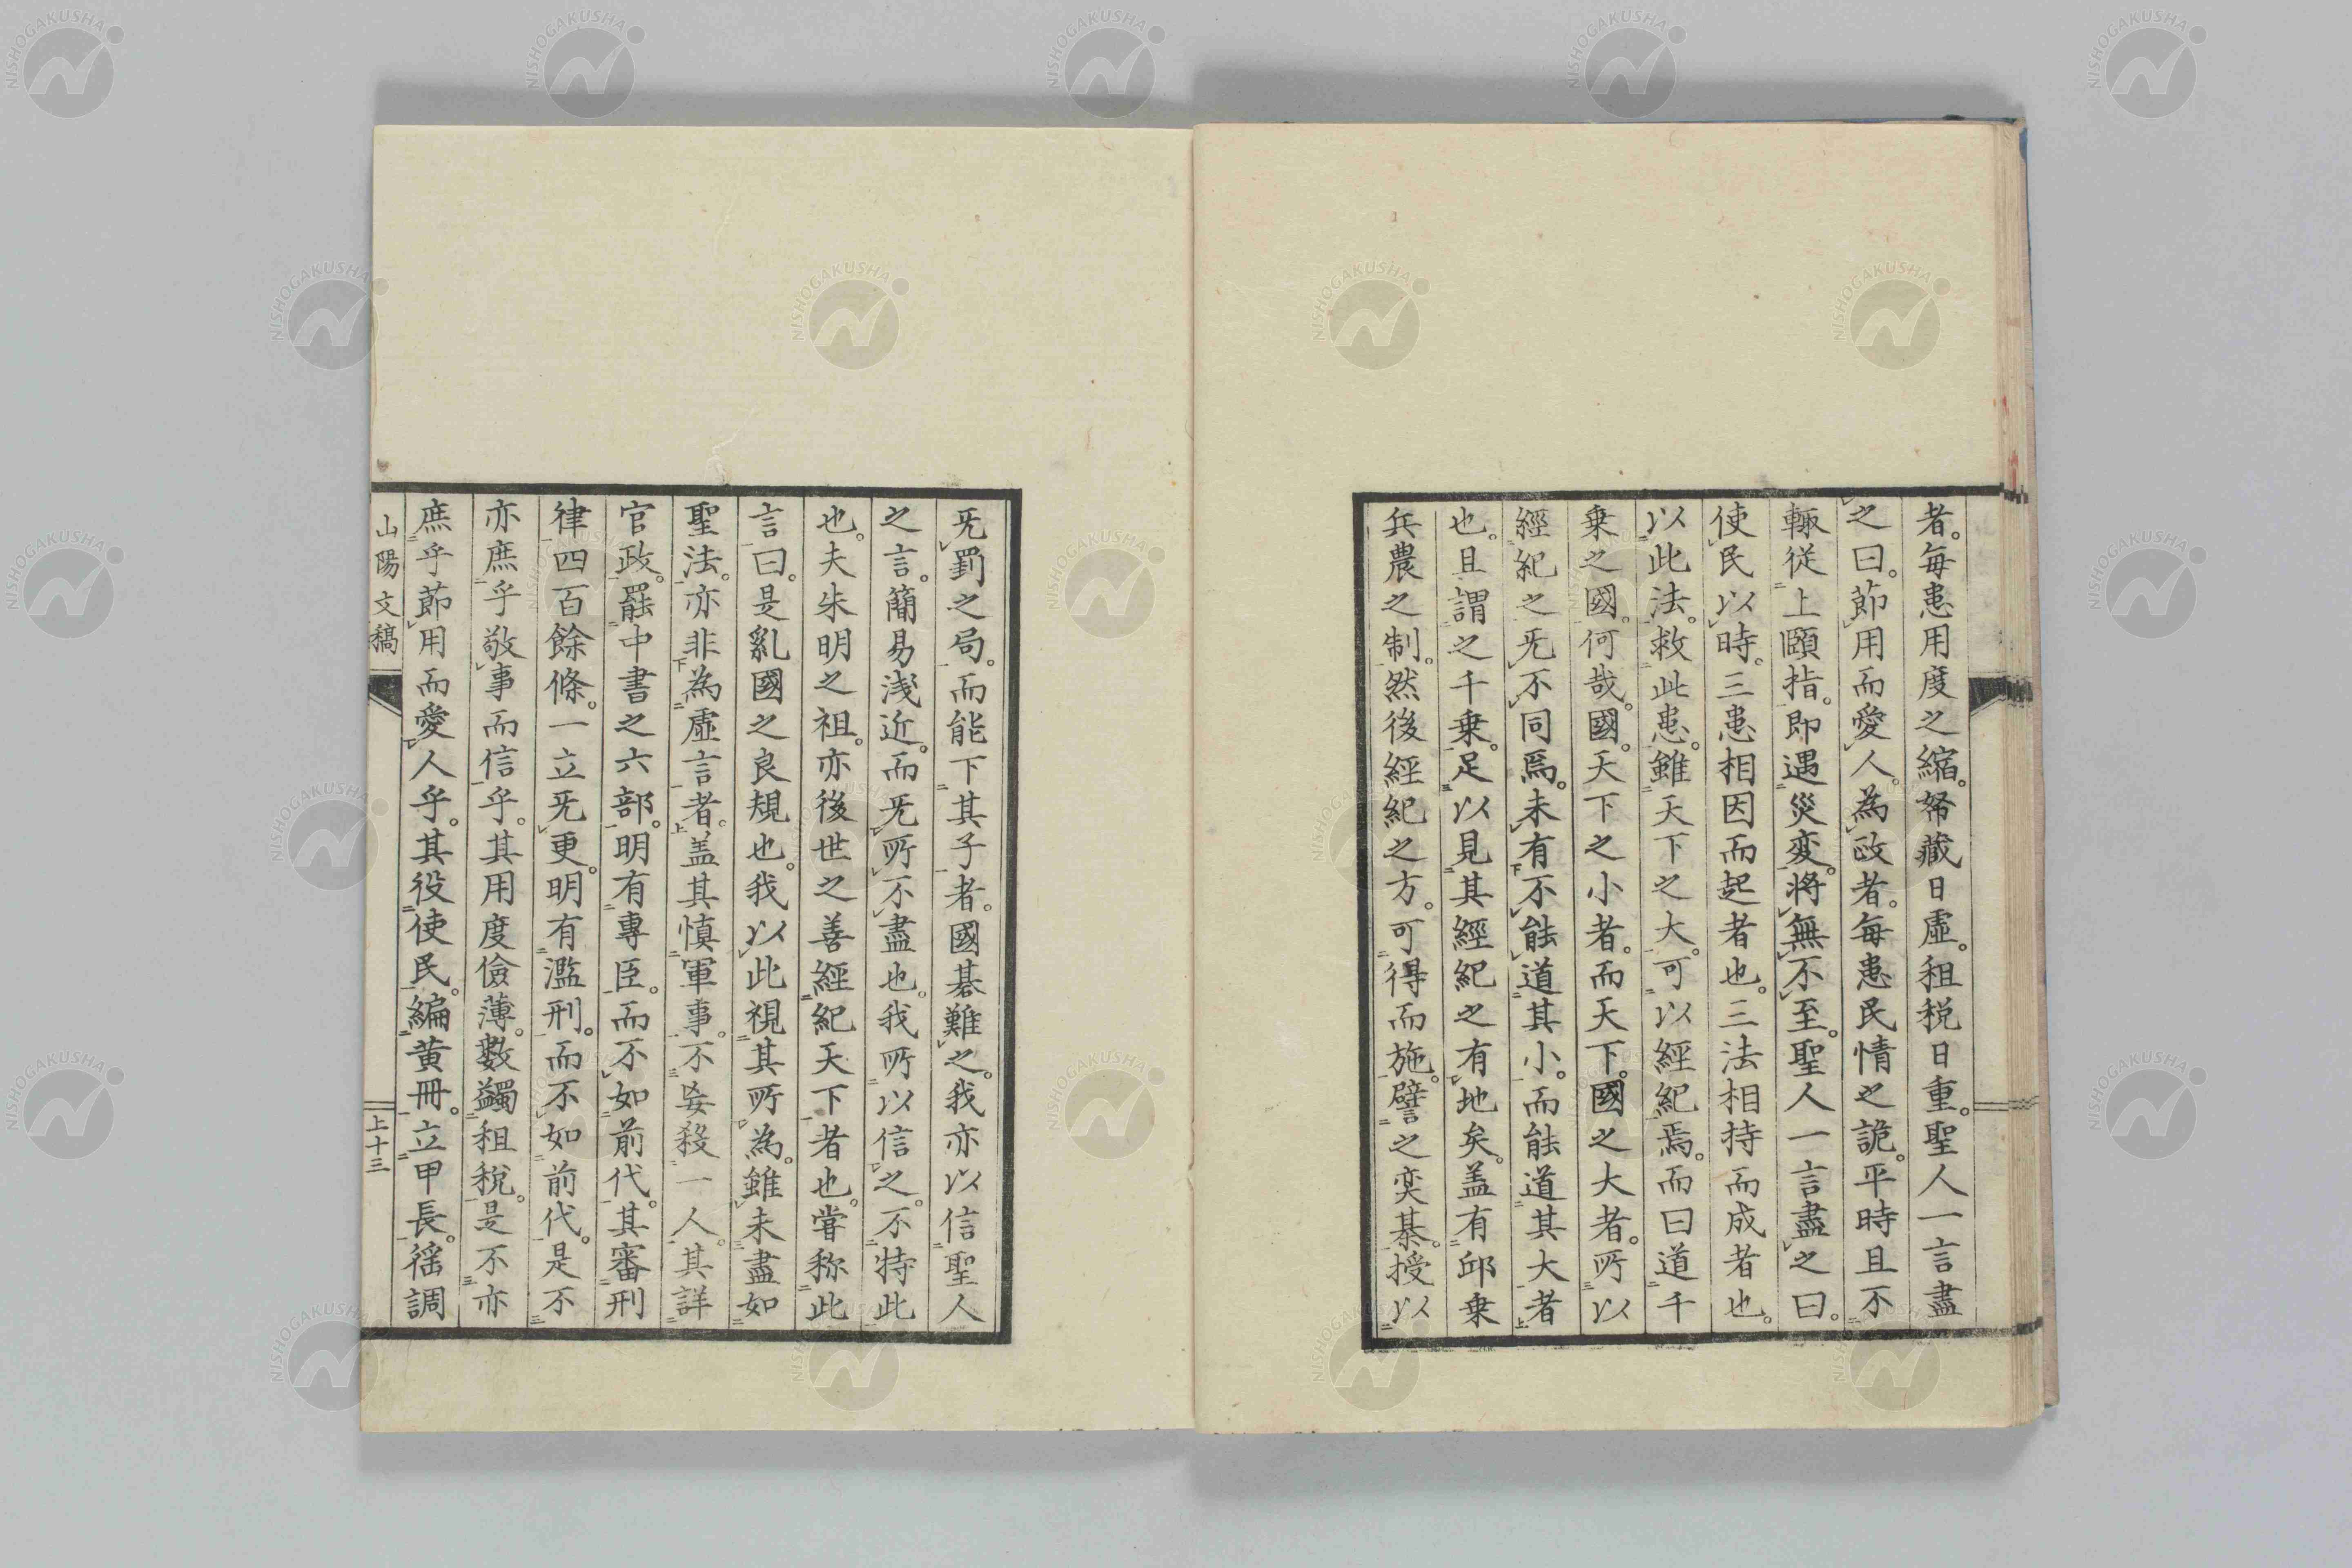 者。毎患用度之縮。帑藏日虛。租税日重。聖人一言盡
之曰。節用而愛人。為政者。毎患民情之詭。平時且不
輙従上頤指。即遇災変。将無不至。聖人一言盡之曰。
使民以時。三患相因而起者也。三法相持而成者也。
以此法。救此患。雖天下之大。可以經紀焉。而曰道千
乗之國。何哉。國。天下之小者。而天下。國之大者。所以
經紀之旡不同焉。未有不能道其小。而能道其大者
也。且謂之千乗。足以見其經紀之有地矣。盖有邱乗
兵農之制。然後經紀之方。可得而施。譬之奕棊。授以
旡罫之局。而能下其子者。國碁難之。我亦以信聖人
之言。簡易淺近。而旡所不盡也。我所以信之。不特此
也。夫朱明之祖。亦後世之善經紀天下者也。嘗称此
言曰。是亂國之良規也。我以此視其所為。雖未盡如
聖法。亦非為虛言者。盖其慎軍事。不妄殺一人。其詳
官政。罷中書之六部。明有專臣。而不如前代。其審刑
律四百餘條。一立旡更。明有濫刑。而不如前代。是不
亦庶乎敬事而信乎。其用度儉薄。數蠲租税。是不亦
庶乎節用而愛人乎。其役使民。編黄冊。立甲長。徭調
山陽文稿
上十三
NISHOGAKUSHA